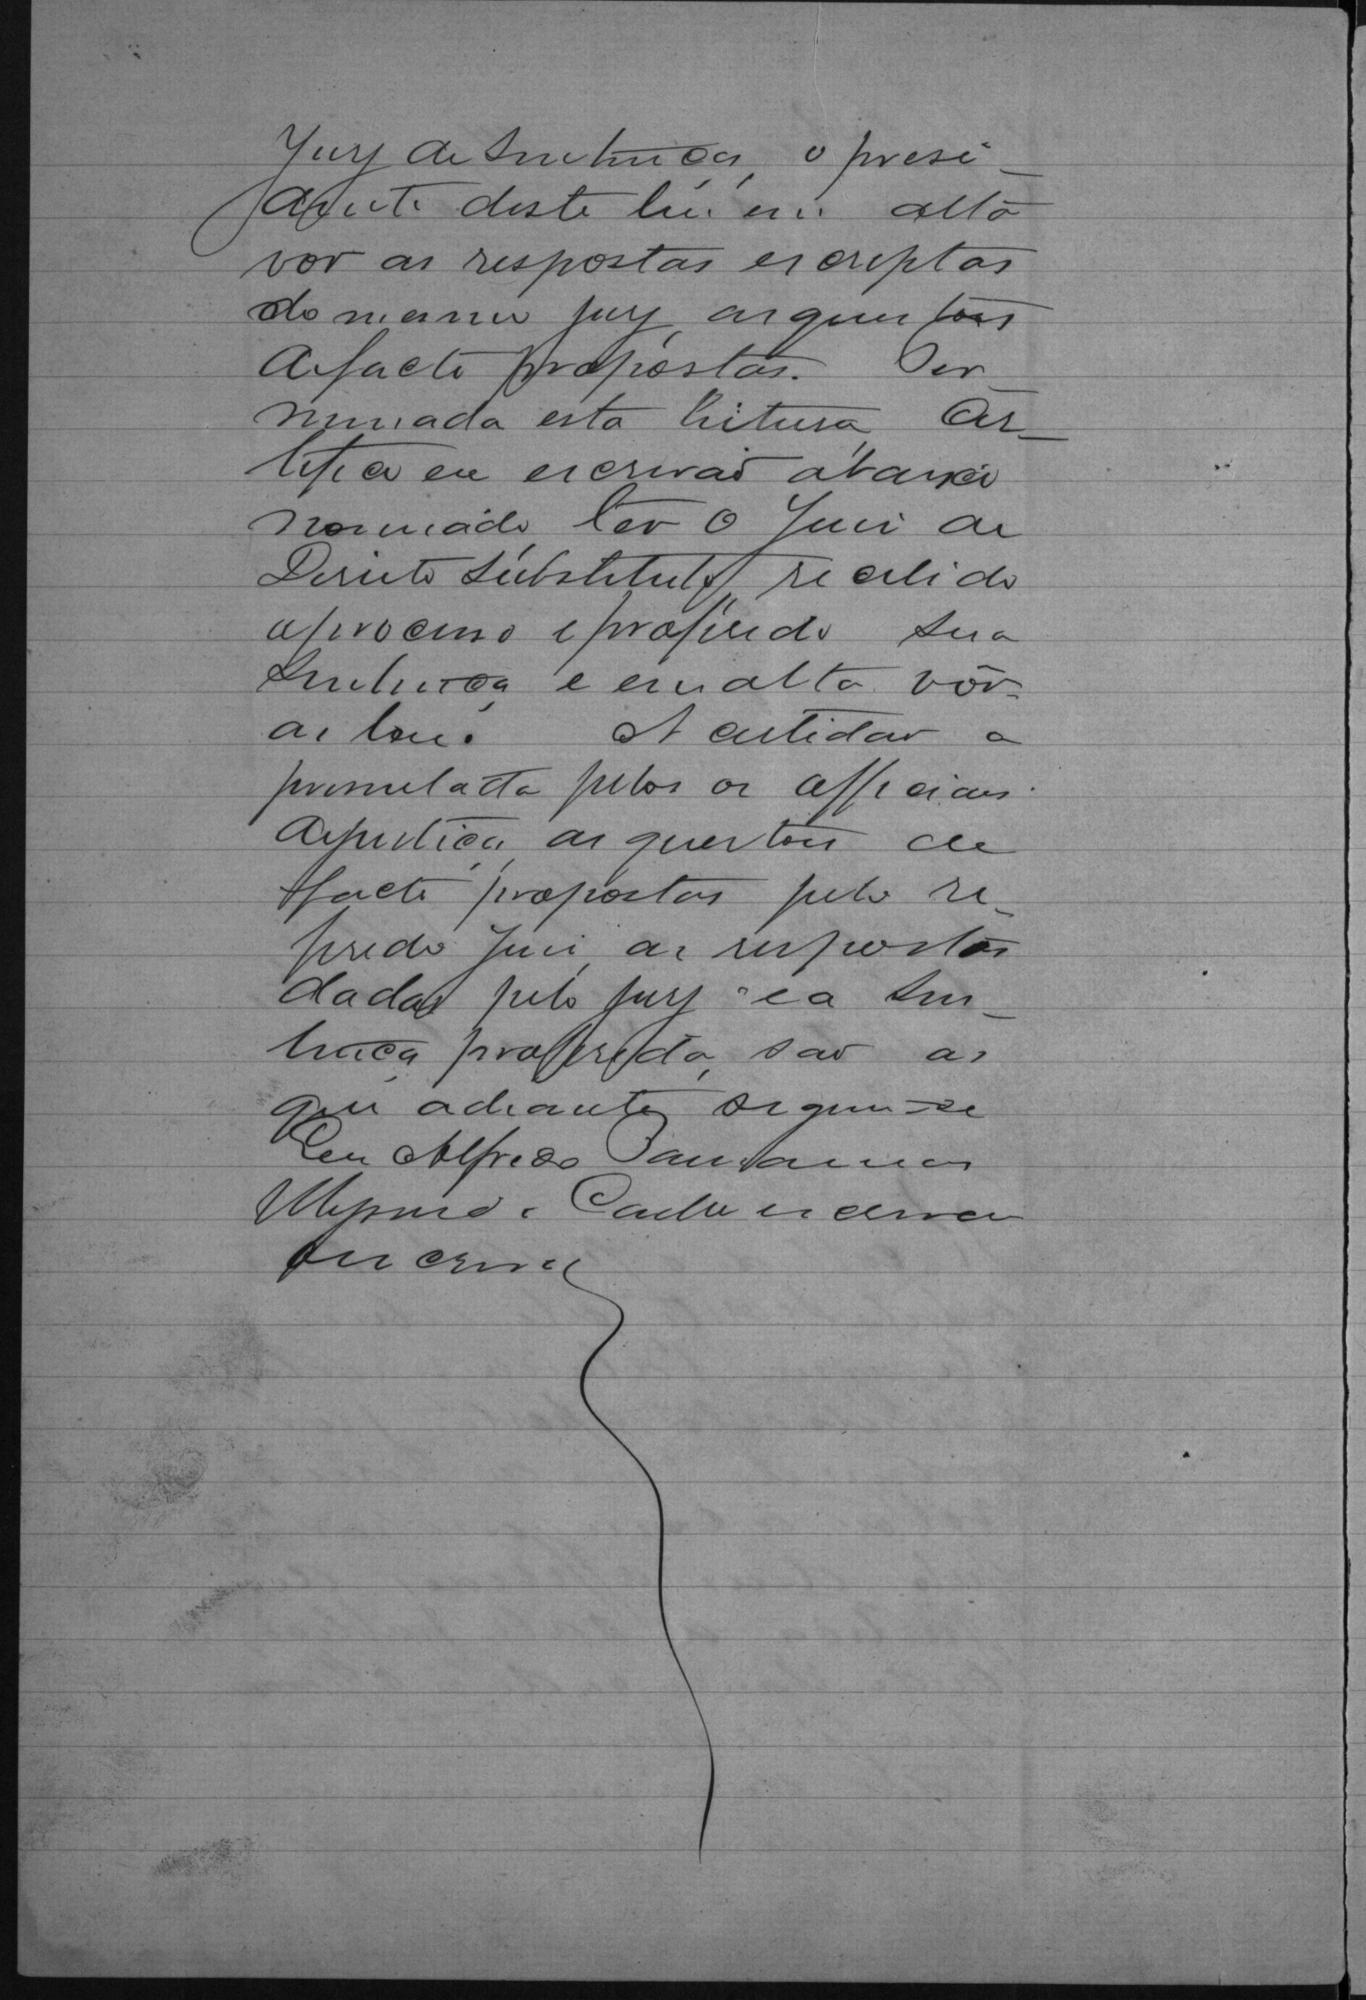 Jury de Sentença, o presi-
dente deste leu em alta
voz as respostas escriptas
do mesmo jury, as questões
de facto propostas. Ter-
minada esta leitura, cer-
tifico eu escrivão abaixo
nomeado, ter o Juiz de
Direito Substituto, recebido
o processo e proferido sua
Sentença e em alta voz
as leu. A certidão a
passada pelos officiaes
de justiça, as questões de
facto propostas pelo re-
ferido Juiz, as respostas
dadas pelo jury e a Sen-
tença proferida, são as
que adiante seguem-se
Eu Alfredo
escrivão
escrevi